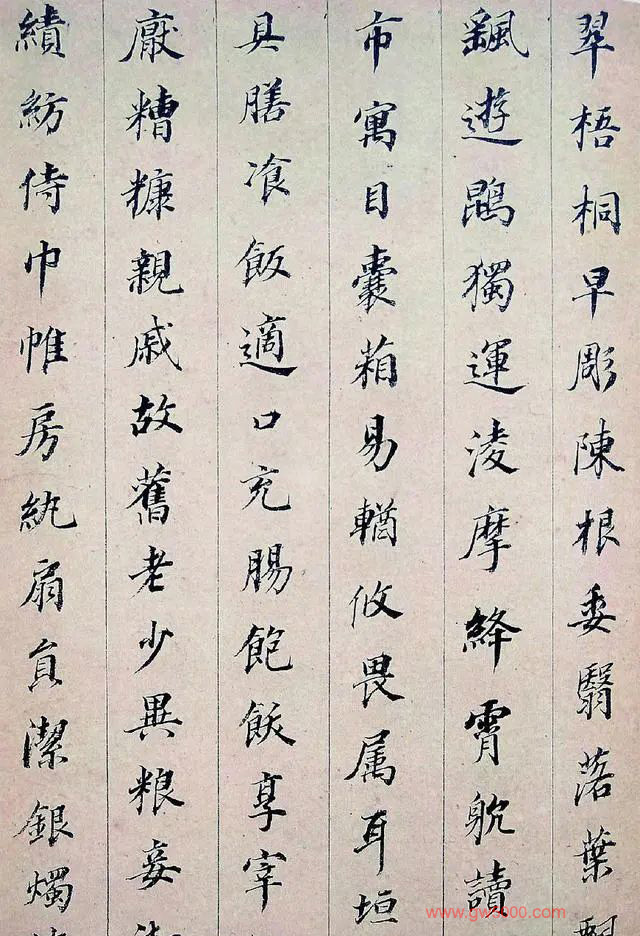 翠梧桐早彫陳根委翳落葉
颻遊鵾獨運淩摩絳霄躭讀
市寓目囊葙易輶攸畏属耳垣
具膳飡飯適口充腸飽飫享宰
厭糟糠親戚故舊老少異粮妾
績紡侍巾帷房紈扇員潔銀燭
www.gw5000.com